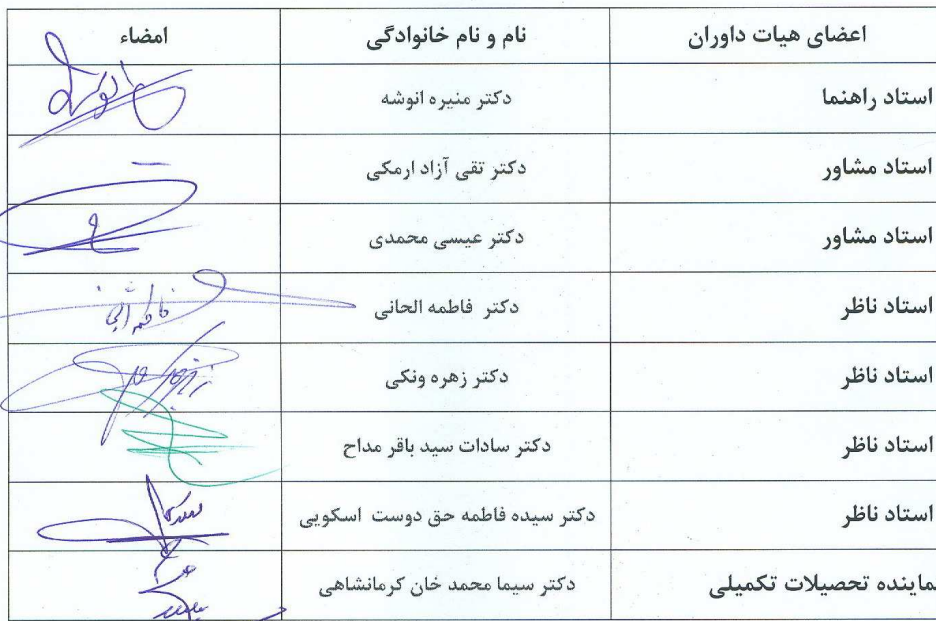 اعضای هیات داوران نام و نام خانوادگی امضاء
استاد راهنما دکتر منیره انوشه
استاد مشاور دکتر تقی آزاد ارمکی
استاد مشاور دکتر عیسی محمدی
استاد ناظر دکتر فاطمه الحانی
استاد ناظر دکتر زهره ونکی
استاد ناظر دکتر سادات سید باقر مداح
استاد ناظر دکتر سیده فاطمه حق دوست اسکویی
ماینده تحصیلات تکمیلی دکتر سیما محمد خان کرمانشاهی